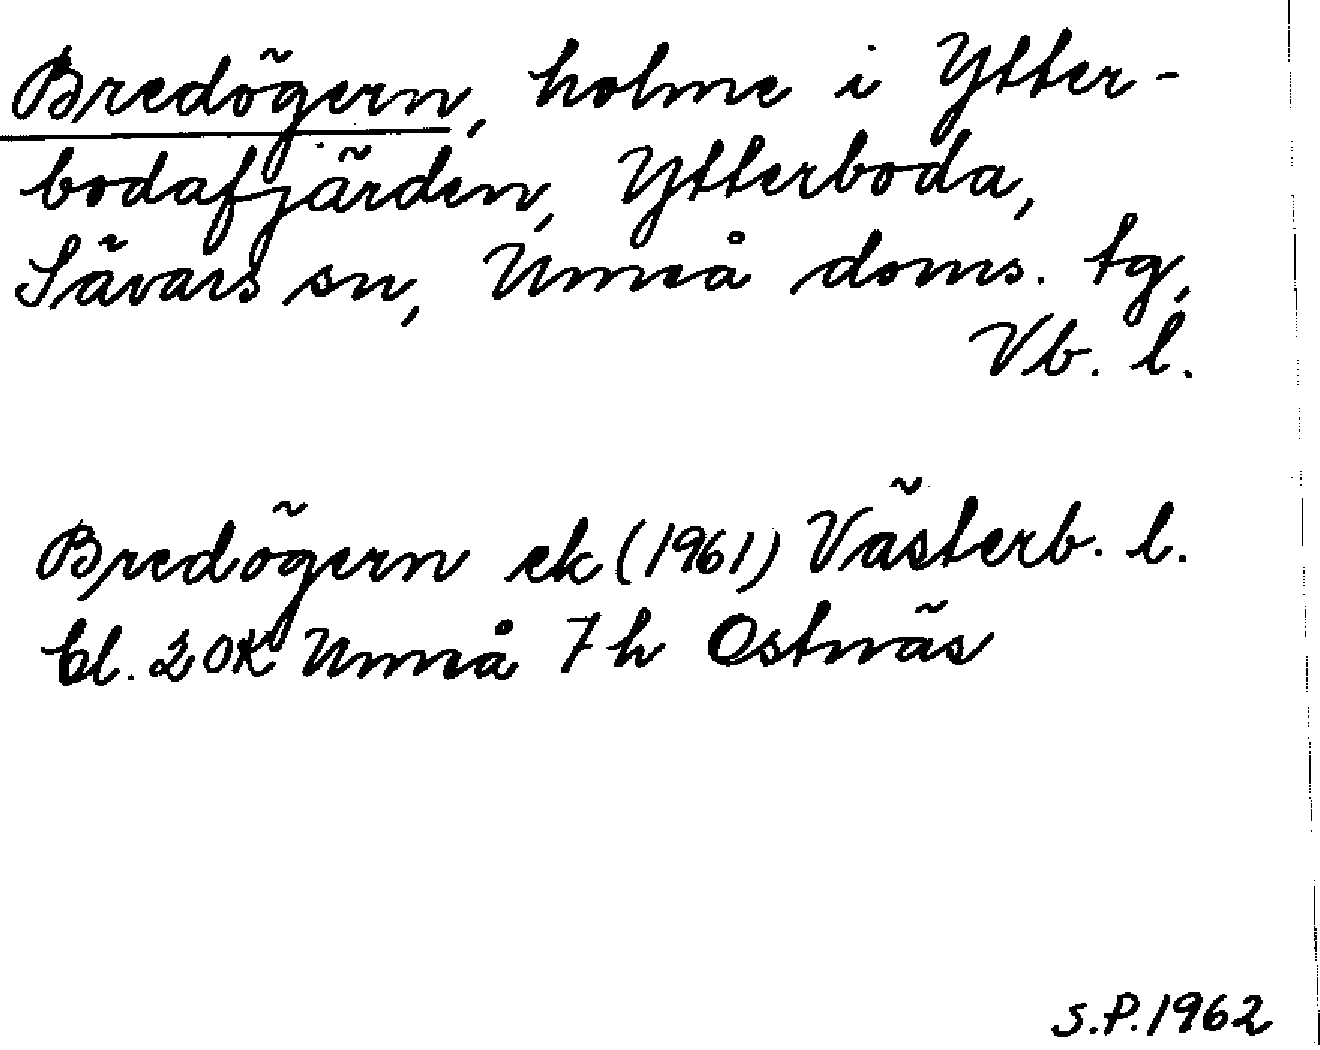 Bredögern, holme i Ytter-
bodafjärden, Ytterboda,
Sävars sn, Umeå doms. tg,
Vb. l.
Bredögern ek (1961) Västerb. l.
bl. 20K Umeå 7h Ostnäs
S.P. 1962